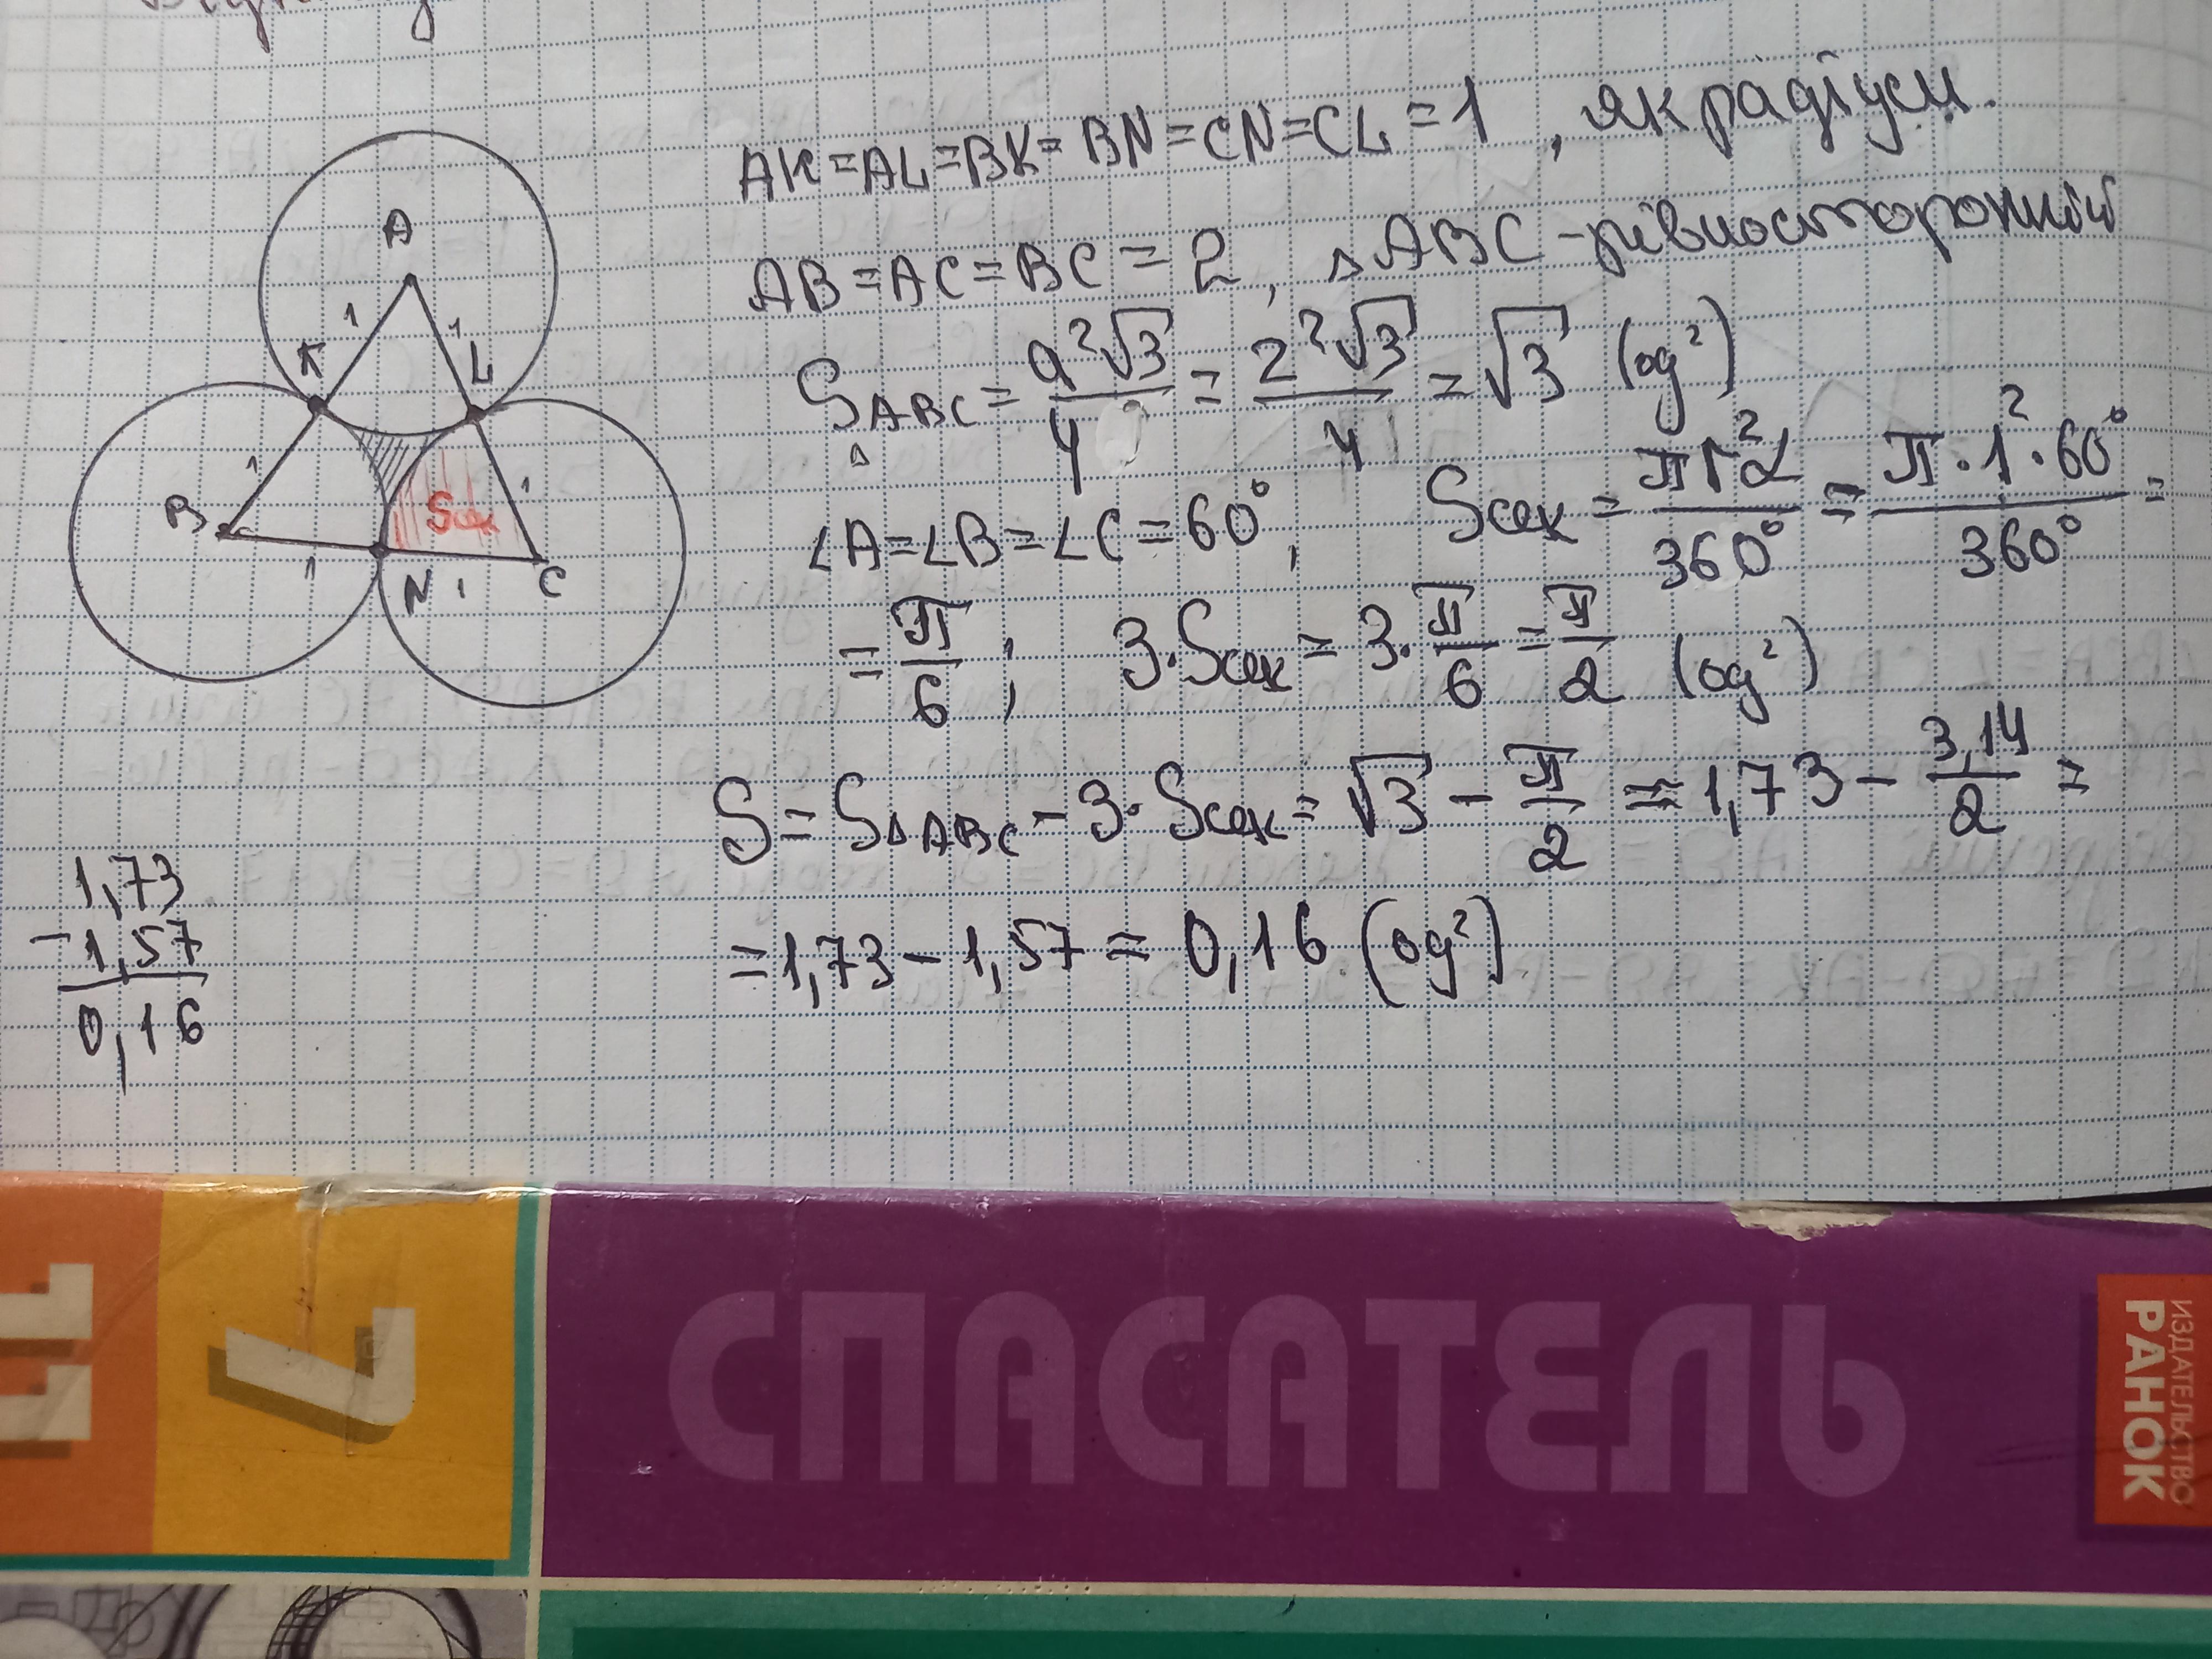 AK=AL=BK=BN=CN=CL=1, як радіуси.
AB=AC=BC=2, △ABC-рівносторонній
S△ABC = a²√3/4 = 2²√3/4 = √3 (од²)
∠A=∠B=∠C=60°, Sсек = πr²α/360° = π·1²·60°/360° =
= π/6; 3·Sсек = 3·π/6 = π/2 (од²)
S = S△ABC - 3·Sсек = √3 - π/2 ≈ 1,73 - 3,14/2 =
= 1,73 - 1,57 = 0,16 (од²)
A
1 1
K L
1 1
B Sсек
1 N 1 C
1,73
- 1,57
0,16
11
7
СПАСАТЕЛЬ
ИЗДАТЕЛЬСТВО
РАНОК